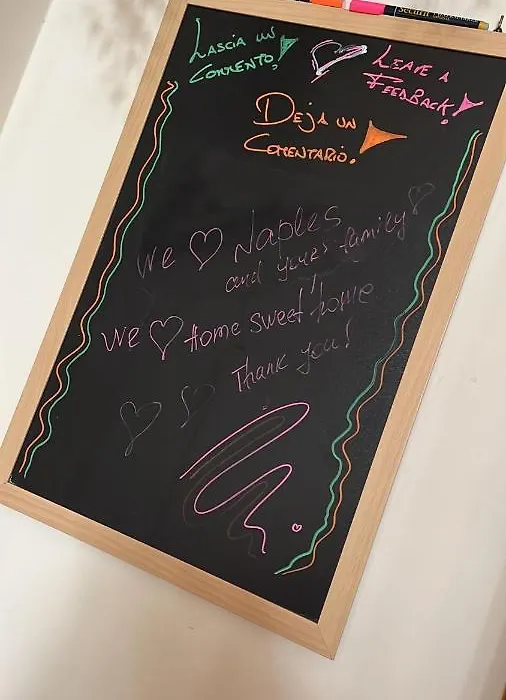 LASCIA UN
COMMENTO!
LEAVE A
FEEDBACK!
DEJA UN
COMENTARIO.
We ♡ Naples
and yours family
We ♡ Home sweet home
Thank you!